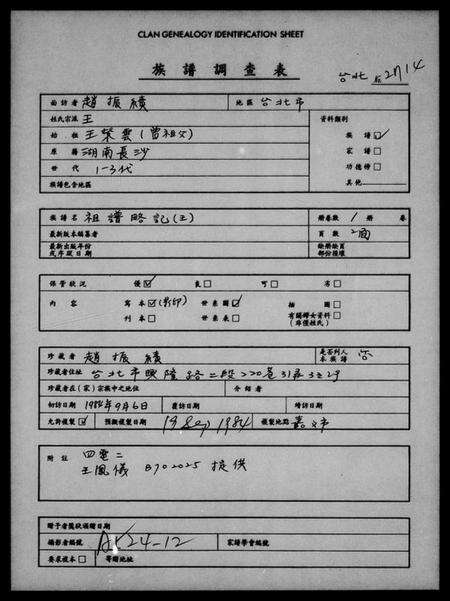 CLAN GENEALOGY IDENTIFICATION SHEET
族譜調查表
台北 2714
面訪者 趙振績 地區 台北市
姓氏宗派 王
始祖 王榮雲(曾祖父)
原籍 湖南長沙
世代 1-3代
族譜包含地區
資料類別
族譜☑
家譜□
功德榜□
其他
族譜名 祖譜略記(王) 冊卷數 1 冊 卷
最新版本編纂者 頁數 2面
最新出版年份
或序跋日期
保管狀況 優☑ 良□ 可□ 劣□
內容 寫本☑(影印) 世系圖☑ 插圖□
刊本□ 世系表□ 有關婦女資料□
(非僅姓氏)
珍藏者 趙振績 是否列入
本族譜 否
珍藏者住址 台北市興隆路二段220巷31弄
珍藏者在(家)宗族中之地位 介紹者
初訪日期 1984年9月6日 覆訪日期 增訪日期
允許複製☑ 預期複製日期 1984 複製地點
附註 四電二
王鳳儀 8702025 提供
贈予者獲狀捐贈日期
攝影者編號 24-12 家譜學會編號
要求複本□ 寄贈地址